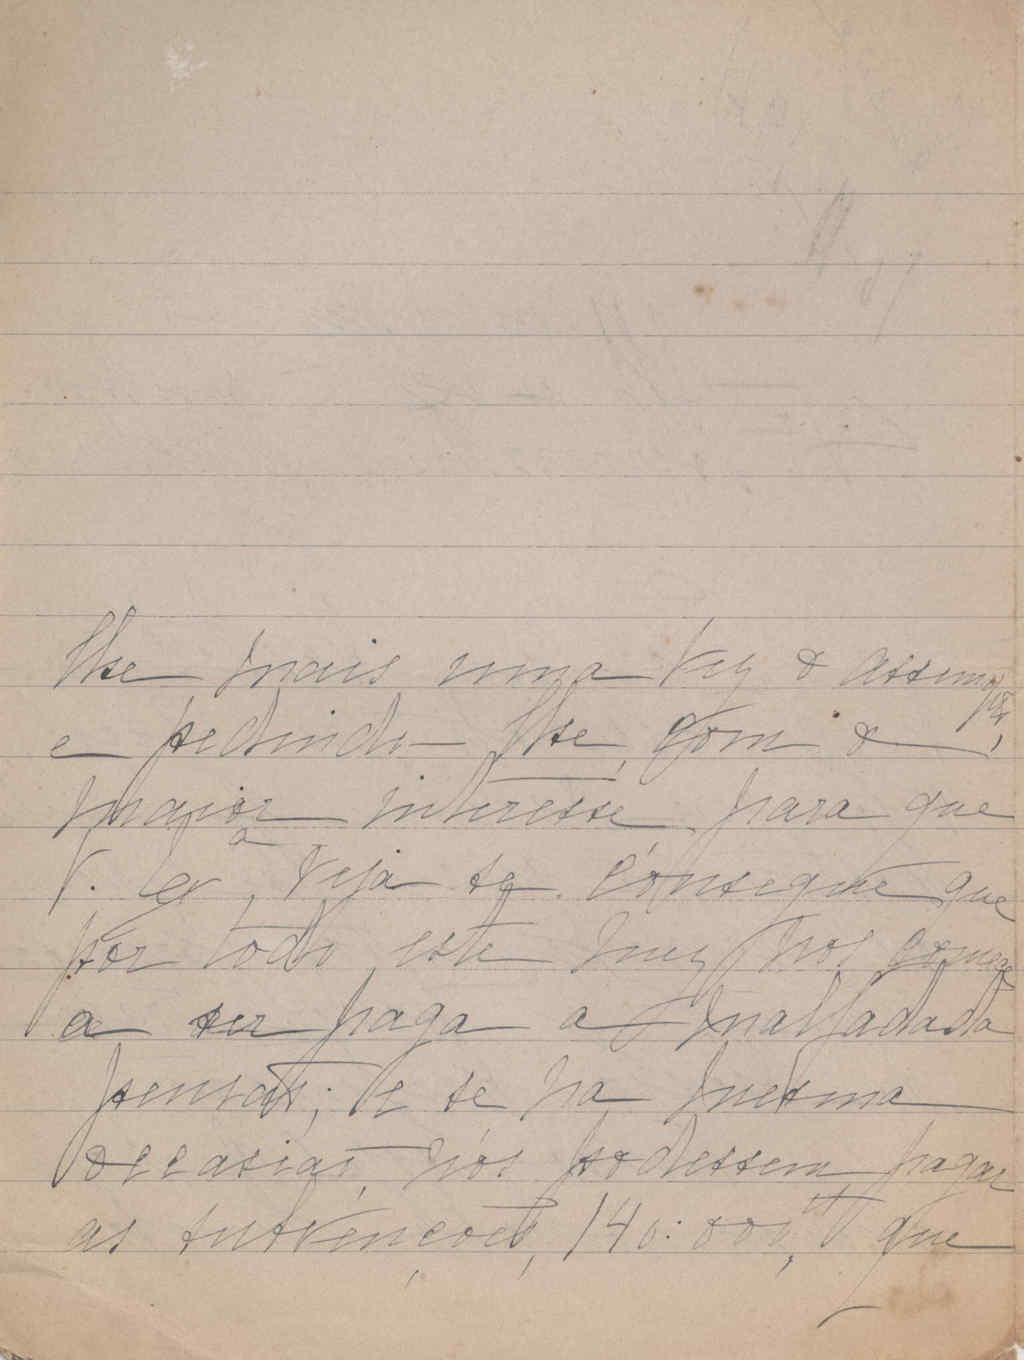 lhe mais uma vez o assumpto,
e pedindo-lhe, com o
maior interesse para que
V. Exª, veja se consegue que
por todo este mez nos comece
a ser paga a malfadada
pensão; e se na mesma
occasião, nós podessem pagar
as subvenções, 140:000, que